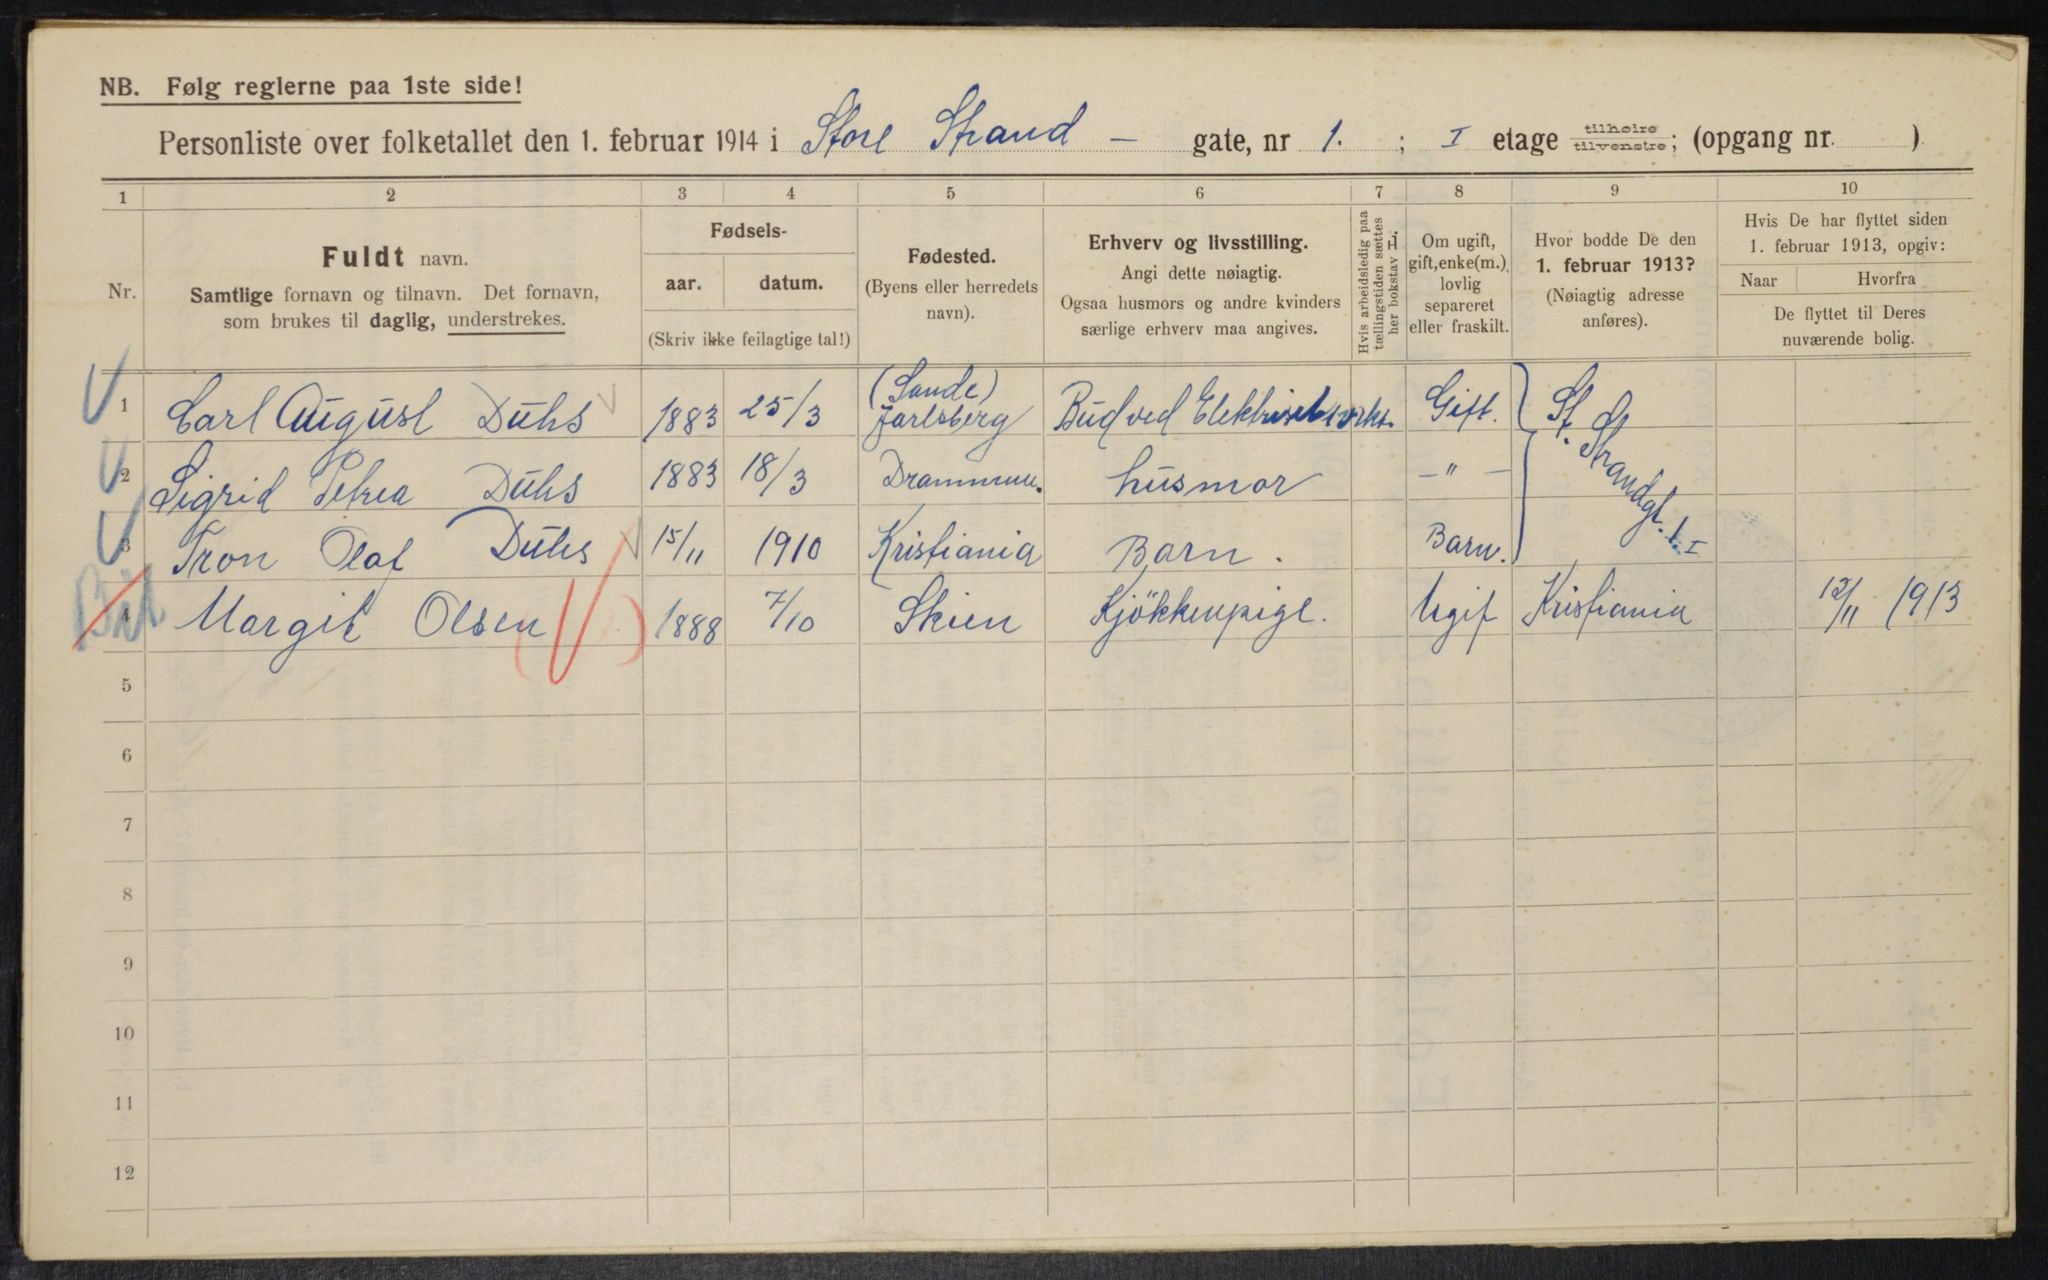 NB. Følg reglerne paa 1ste side!
Personliste over folketallet den 1. februar 1914 i Store Strand – gate, nr 1. ; I etage tilhøire tilvenstre; (opgang nr. )
1 2 3 4 5 6 7 8 9 10
Nr.
Fuldt navn.
Samtlige fornavn og tilnavn. Det fornavn,
som brukes til daglig, understrekes.
Fødsels-
aar. datum.
(Skriv ikke feilagtige tal!)
Fødested.
(Byens eller herredets
navn).
Erhverv og livsstilling.
Angi dette nøiagtig.
Ogsaa husmors og andre kvinders
særlige erhverv maa angives.
Hvis arbeidsledig paa
tællingstiden sættes
her bokstav L.
Om ugift,
gift, enke(m.),
lovlig
separeret
eller fraskilt.
Hvor bodde De den
1. februar 1913?
(Nøiagtig adresse
anføres).
Hvis De har flyttet siden
1. februar 1913, opgiv:
Naar Hvorfra
De flyttet til Deres
nuværende bolig.
1 Carl August Duhs 1883 25/3 (Sande) Jarlsberg Bud ved Elektrisitetsverket. Gift. St. Strandgt. 1. I
2 Sigrid Petrea Duhs 1883 18/3 Drammen. husmor –"–
3 Tron Olaf Duhs 15/11 1910 Kristiania Barn. Barn.
4 Margit Olsen 1888 7/10 Skien Kjökkenpige. Ugif Kristiania 12/11 1913
5
6
7
8
9
10
11
12